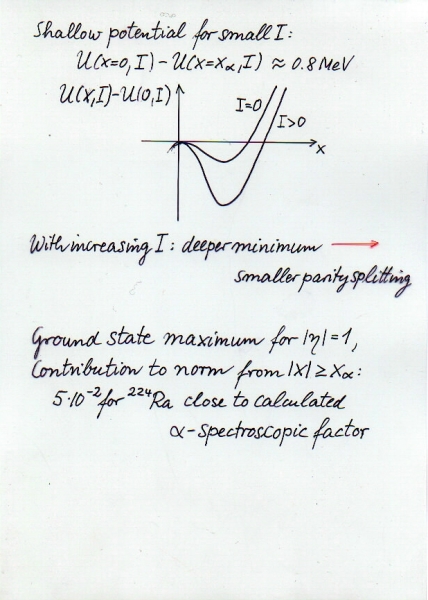 Shallow potential for small I:
U(x=0, I) - U(x=xα, I) ≈ 0.8 MeV
U(x,I)-U(0,I)
I=0
I>0
x
With increasing I: deeper minimum →
smaller parity splitting
Ground state maximum for |η|=1,
Contribution to norm from |x| ≥ xα:
5·10⁻² for ²²⁴Ra close to calculated
α-spectroscopic factor